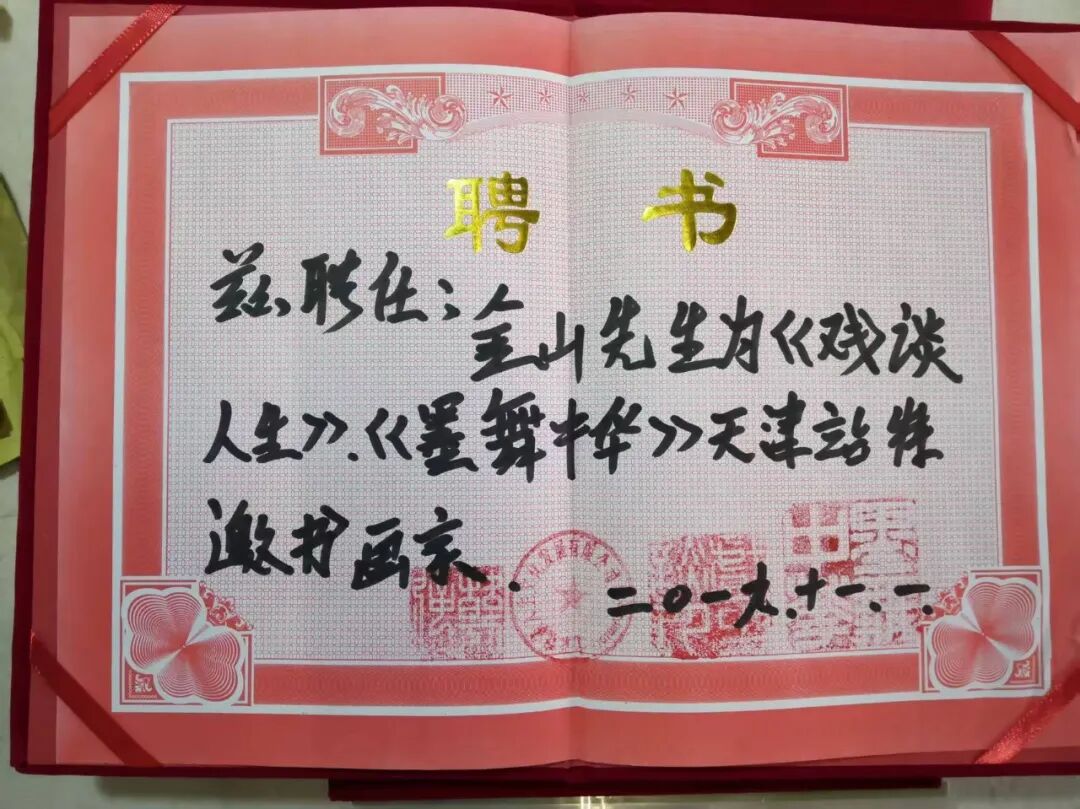 聘书
兹聘任:
金山先生为《戏谈
人生》.《墨舞中华》天津站特
邀书画家.
二〇一九.十一.一.